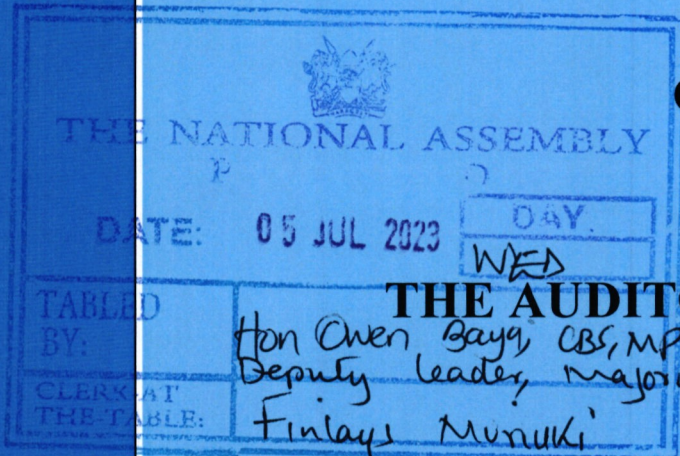 THE NATIONAL ASSEMBLY
P
DATE: 05 JUL 2023 DAY.
WED
THE AUDIT
TABLED BY:
Hon Owen Baya, CBS, MP
Deputy Leader, Major
CLERK-AT THE-TABLE:
Finlays Muriuki